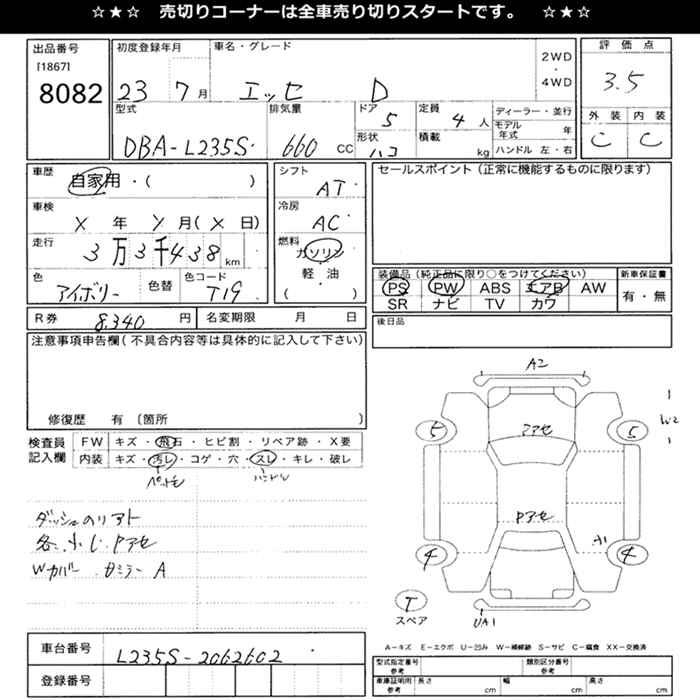 ☆★☆ 売切りコーナーは全車売り切りスタートです。 ☆★☆
出品番号
[1867]
8082
初度登録年月
23 7月
車名・グレード
エッセ D
2WD
・
4WD
評価点
3.5
外装 内装
C C
型式
DBA-L235S
排気量
660 CC
ドア
5
形状
ハコ
定員
4人
積載
kg
ディーラー・並行
モデル年式 年
ハンドル 左・右
車歴
自家用・( )
車検
X 年 X 月(X 日)
走行
3万3千438km
色
アイボリー
色替
色コード
T19
シフト
AT
冷房
AC
燃料
ガソリン
・
軽・油
( )
セールスポイント(正常に機能するものに限ります)
装備品(純正品に限り○をつけてください)
PS PW ABS エアB AW
SR ナビ TV カワ
新車保証書
有・無
R券 8,340 円
名変期限 月 日
後日品
注意事項申告欄(不具合内容等は具体的に記入して下さい)
修復歴 有 〔箇所 〕
検査員記入欄
FW キズ・飛石・ヒビ割・リペア跡・X要
内装 キズ・汚レ・コゲ・穴・スレ・キレ・破レ
ハンドル
W カバー
A
A2
5
アセ
5
W2
Pアセ
A1
4
4
T
スペア
UA1
車台番号
L235S-2062602
登録番号
A-キズ E-エクボ U-凹み W-補修跡 S-サビ C-腐食 XX-交換済
型式指定番号 参考
類別区分番号 参考
車庫証明用 参考
長さ cm
幅 cm
高さ cm